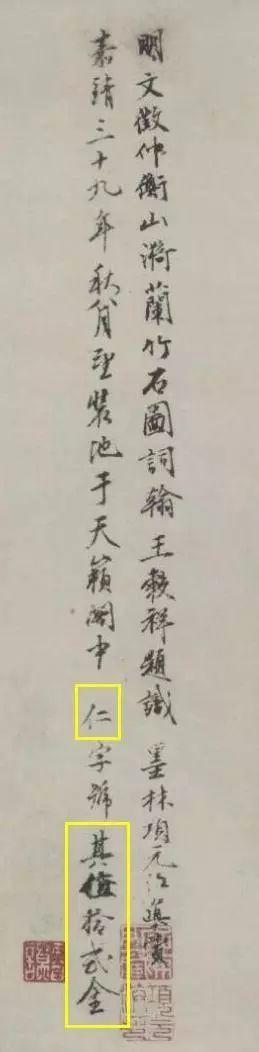 明文徵仲衡山漪蘭竹石圖詞翰王榖祥題識 墨林項元汴真賞
嘉靖三十九年秋月重裝池于天籟閣中 仁字號 其值拾貳金